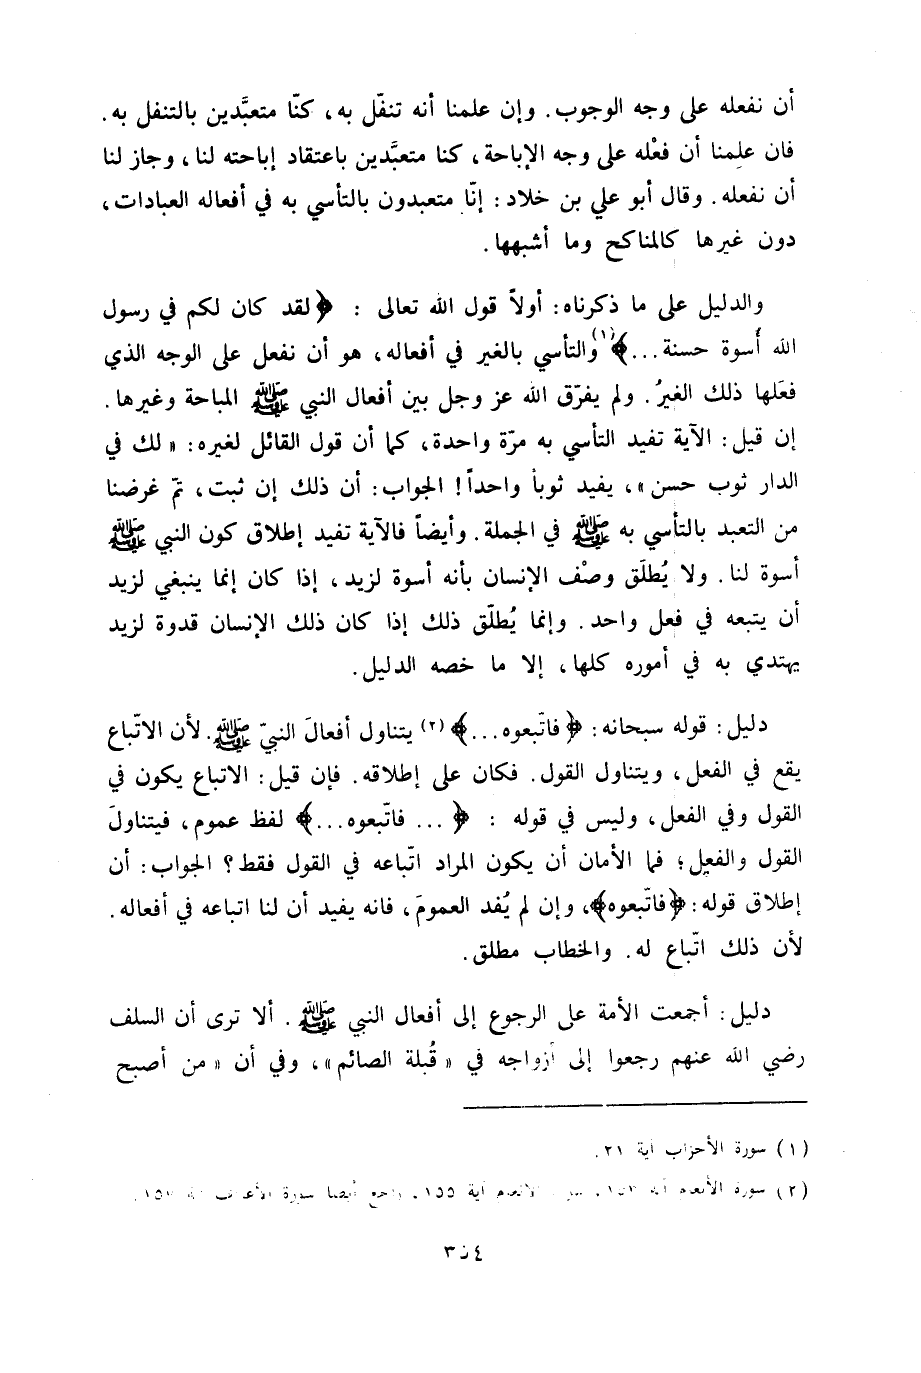 أن نفعله على وجه الوجوب. وإن علمنا أنه تنفّل به، كنّا متعبَّدين بالتنفل به.
فان علِمنا أن فعْله على وجه الإباحة، كنا متعبَّدين باعتقاد إباحته لنا، وجاز لنا
أن نفعله. وقال أبو علي بن خلاد: إنّا متعبدون بالتأسي به في أفعاله العبادات،
دون غيرها كالمناكح وما أشبهها.
والدليل على ما ذكرناه: أولاً قول الله تعالى : ﴿لقد كان لكم في رسول
الله أُسوة حسنة...﴾(١) والتأسي بالغير في أفعاله، هو أن نفعل على الوجه الذي
فعَلها ذلك الغيرُ. ولم يفرّق الله عز وجل بين أفعال النبي ﷺ المباحة وغيرها.
إن قيل: الآية تفيد التأسي به مرّة واحدة، كما أن قول القائل لغيره: «لك في
الدار ثوب حسن»، يفيد ثوباً واحداً! الجواب: أن ذلك إن ثبت، تمّ غرضنا
من التعبد بالتأسي به ﷺ في الجملة. وأيضاً فالآية تفيد إطلاق كون النبي ﷺ
أسوة لنا. ولا يُطلَق وصْف الإنسان بأنه أسوة لزيد، إذا كان إنما ينبغي لزيد
أن يتبعه في فعل واحد. وإنما يُطلَق ذلك إذا كان ذلك الإنسان قدوة لزيد
يهتدي به في أموره كلها، إلا ما خصه الدليل.
دليل: قوله سبحانه: ﴿فاتّبعوه...﴾ (٢) يتناول أفعالَ النبيّ ﷺ. لأن الاتّباع
يقع في الفعل، ويتناول القول. فكان على إطلاقه. فإن قيل: الاتباع يكون في
القول وفي الفعل، وليس في قوله : ﴿... فاتّبعوه...﴾ لفظ عموم، فيتناولَ
القول والفعل؛ فما الأمان أن يكون المراد اتّباعه في القول فقط؟ الجواب: أن
إطلاق قوله: ﴿فاتّبعوه﴾، وإن لم يُفد العمومَ، فانه يفيد أن لنا اتباعه في أفعاله.
لأن ذلك اتّباع له. والخطاب مطلق.
دليل: أجمعت الأمة على الرجوع إلى أفعال النبي ﷺ. ألا ترى أن السلف
رضي الله عنهم رجعوا إلى أزواجه في «قُبلة الصائم»، وفي أن «من أصبح
(١) سورة الأحزاب آية ٢١.
(٢) سورة الأنعام آية ١٥٣. الانعام آية ١٥٥. راجع أيضا سورة الأعراف